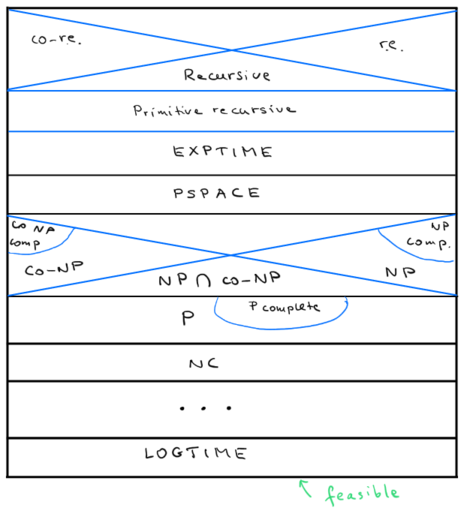 co-r.e.
r.e.
Recursive
Primitive recursive
EXPTIME
PSPACE
Co NP
comp
NP
comp.
Co-NP
NP ∩ co-NP
NP
P
P complete
NC
...
LOGTIME
feasible